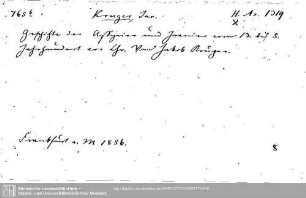 765 t. Kruger Jac. H. As. 1219
X
Geschichte der Assyrier und Iranier vom 13. bis 5.
Jahrhundert vor Chr. Von Jakob Krüger.
Frankfurt a. M 1856.
8
Sächsische Landesbibliothek -
Staats- und Universitätsbibliothek Dresden